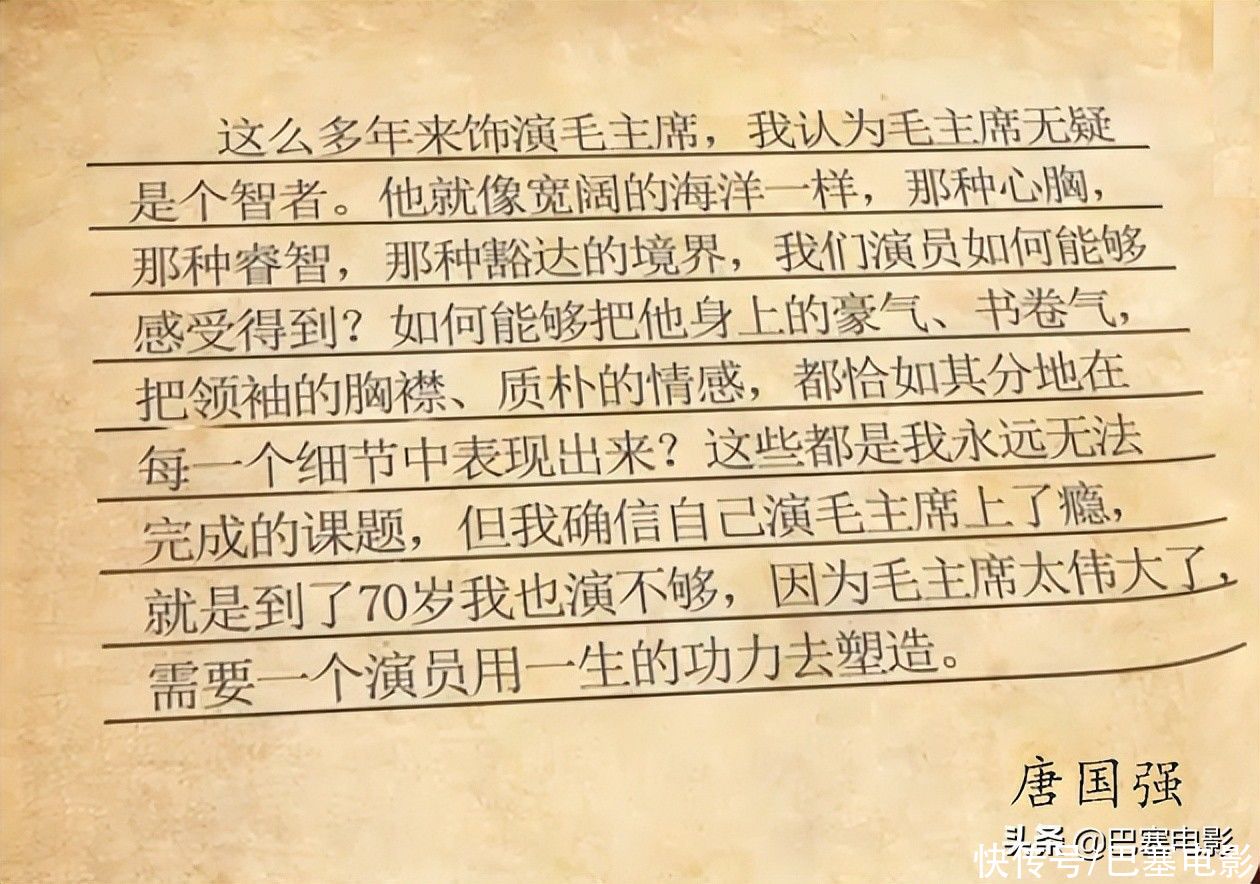 这么多年来饰演毛主席，我认为毛主席无疑
是个智者。他就像宽阔的海洋一样，那种心胸，
那种睿智，那种豁达的境界，我们演员如何能够
感受得到？如何能够把他身上的豪气、书卷气，
把领袖的胸襟、质朴的情感，都恰如其分地在
每一个细节中表现出来？这些都是我永远无法
完成的课题，但我确信自己演毛主席上了瘾，
就是到了70岁我也演不够，因为毛主席太伟大了，
需要一个演员用一生的功力去塑造。
唐国强
头条 @巴塞电影
快传号/巴塞电影